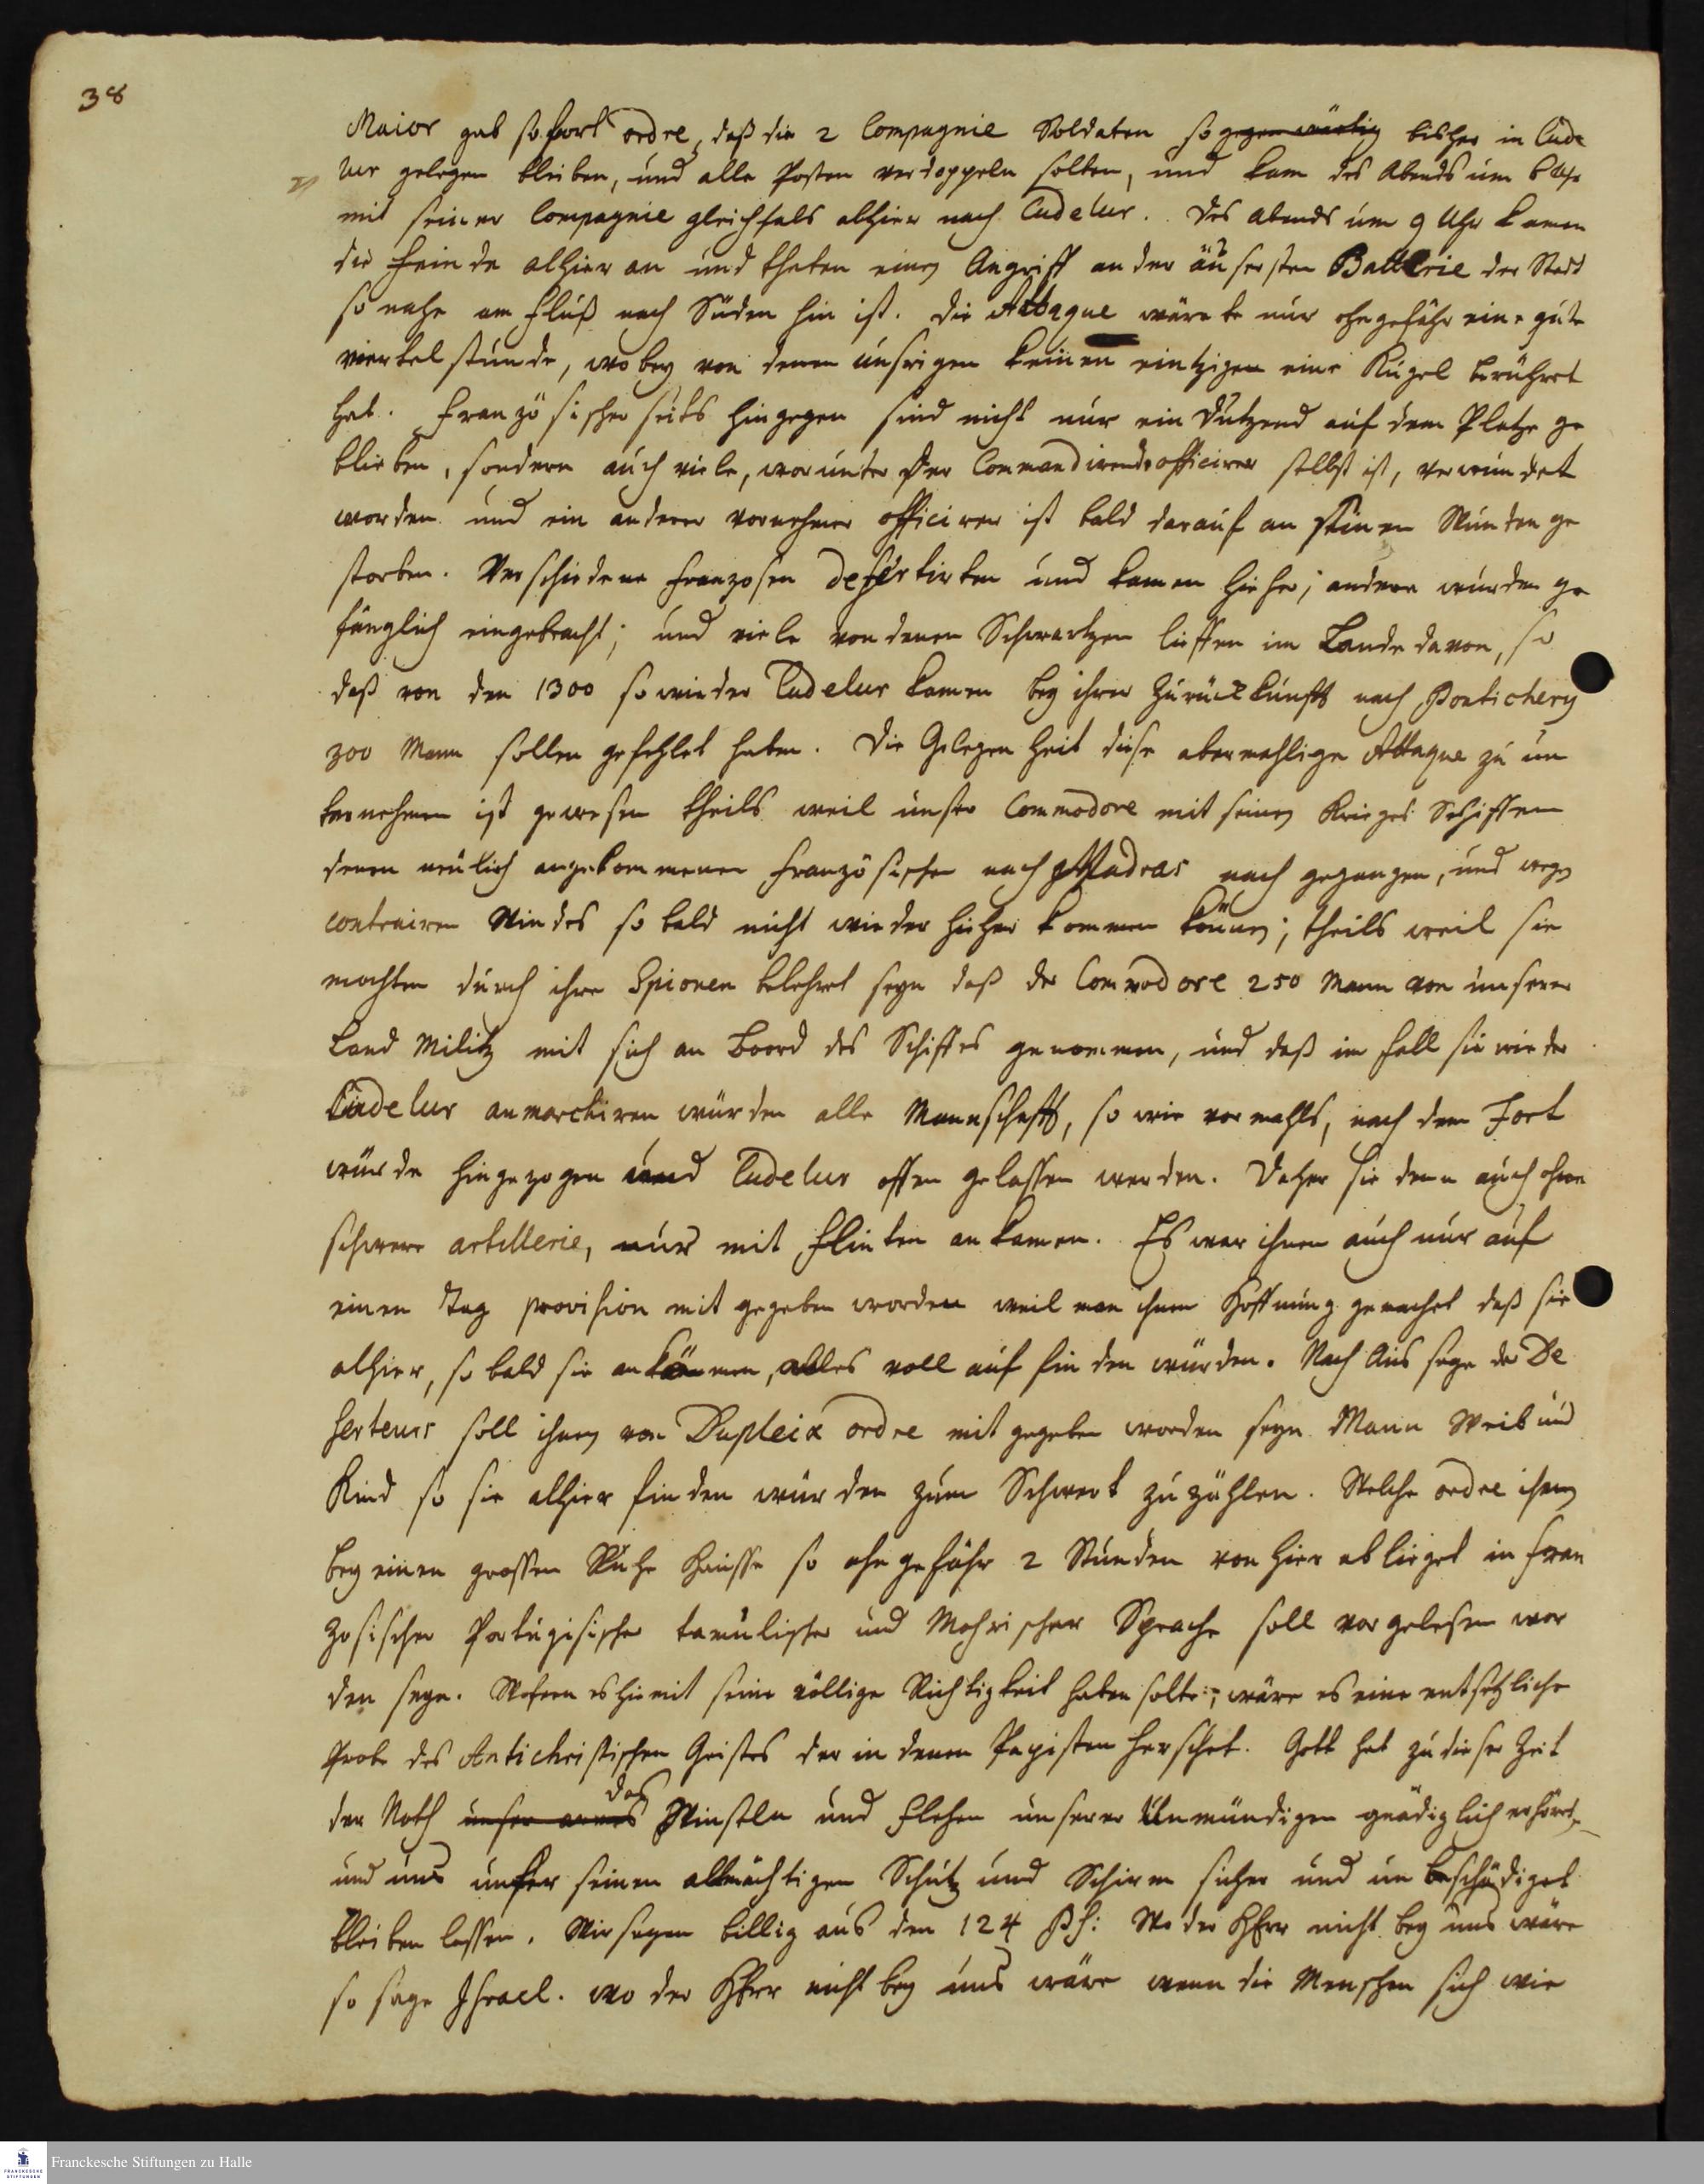 38
Maior gab sofort ordre, daß die 2 Compagnie Soldaten so gegenwärtig bisher in Cude
lur gelegen bleiben, und alle Posten verdoppeln solten, und kam des Abends um 6 Uhr
mit seiner Compagnie gleichfals alhier nach Cudelur. Des Abends um 9 Uhr kamen
die Feinde alhier an und thaten einen Angriff an der äusersten Batterie der Stadt
so nahe am Fluß nach Süden hin ist. Die Attaque wärete nur ohngefähr eine gute
viertelstunde, wobey von denen unsrigen keinen eintzigen eine Kugel berühret
hat. Französischer seits hingegen sind nicht nur ein Dutzend auf dem Platze ge
blieben, sondern auch viele, worunter der Commandirende officirer selbst ist, verwundet
worden und ein anderer vornehmer officirer ist bald darauf an seinen Wunden ge
storben. Verschiedene Franzosen desertirten und kamen hieher; andere wurden ge
fänglich eingebracht; und viele von denen Schwartzen lieffen im Lande davon, so
daß von den 1300 so wieder Cudelur kamen bey ihrer Zurückkunfft nach Pontichery
300 Mann sollen gefehlet haben. Die Gelegenheit diese abermahlige Attaque zu un
ternehmen ist gewesen theils weil unser Commodore mit seinen Krieges Schiffen
denen neulich angekommenen Französischen nach Madras nach gegangen, und wegen
contrairen Windes so bald nicht wieder hieher kommen können; theils weil sie
mochten durch ihre Spionen belehret seyn daß der Commodore 250 Mann von unserer
Land Militz mit sich an Boord des Schiffes genommen, und daß im Fall sie wieder
Cudelur anmarchiren würden alle Mannschafft, so wie vormahls, nach dem Fort
würde hingezogen und Cudelur offen gelassen werden. Daher sie denn auch ohne
schwere artillerie, nur mit Flinten ankamen. Es war ihnen auch nur auf
einen Tag provision mit gegeben worden weil man ihnen Hoffnung gemachet daß sie
alhier, so bald sie ankämmen, alles voll auf finden würden. Nach Aussage der De
serteurs soll ihnen von Dupleix ordre mit gegeben worden seyn Mann Weib und
Kind so sie alhier finden würden zum Schwert zu zählen. Welche ordre ihnen
bey einen grossen Ruhe Hausse so ohngefähr 2 Stunden von hier ablieget in Fran
zosischer Portugisischer tamulischer und Mohrischer Sprache soll vorgelesen wor
den seyn. Wofern es hiemit seine völlige Richtigkeit haben solte; wäre es eine entsetzliche
Probe des Antichristischen Geistes der in denen Papisten herschet. Gott hat zu dieser Zeit
der Noth unser armes das Winseln und Flehen unserer Unmündigen gnädiglich erhöret,
und uns unter seinen allmächtigen Schutz und Schirm sicher und un beschädiget
bleiben lassen. Wir sagen billig aus den 124 Ps: Wo der HErr nicht bey uns wäre
so sage Israel. wo der HErr nicht bey uns wäre wenn die Menschen sich wie
Franckesche Stiftungen zu Halle